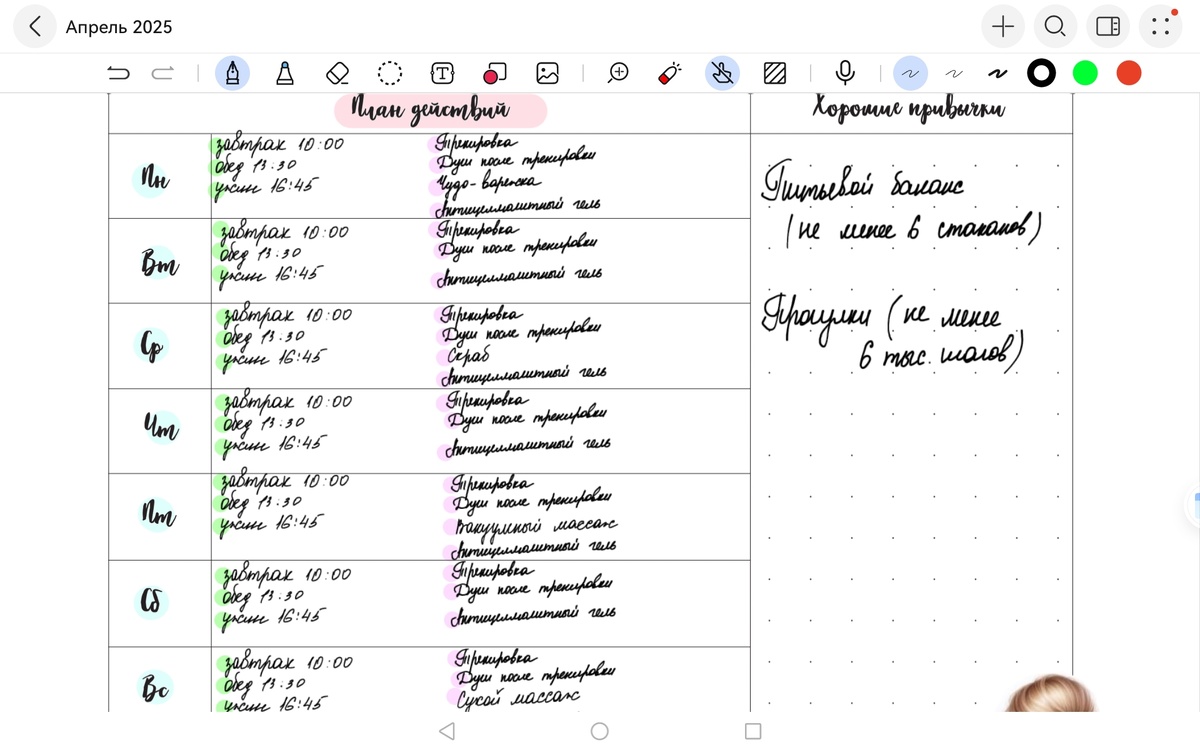 Апрель 2025
План действий
Хорошие привычки
Пн
завтрак 10:00
обед 13:30
ужин 16:45
Тренировка
Душ после тренировки
Чудо-варежка
Антицеллюлитный гель
Вт
завтрак 10:00
обед 13:30
ужин 16:45
Тренировка
Душ после тренировки
Антицеллюлитный гель
Ср
завтрак 10:00
обед 13:30
ужин 16:45
Тренировка
Душ после тренировки
Скраб
Антицеллюлитный гель
Чт
завтрак 10:00
обед 13:30
ужин 16:45
Тренировка
Душ после тренировки
Антицеллюлитный гель
Пт
завтрак 10:00
обед 13:30
ужин 16:45
Тренировка
Душ после тренировки
Вакуумный массаж
Антицеллюлитный гель
Сб
завтрак 10:00
обед 13:30
ужин 16:45
Тренировка
Душ после тренировки
Антицеллюлитный гель
Вс
завтрак 10:00
обед 13:30
ужин 16:45
Тренировка
Душ после тренировки
Сухой массаж
Питьевой баланс
(не менее 6 стаканов)
Прогулки (не менее
6 тыс. шагов)